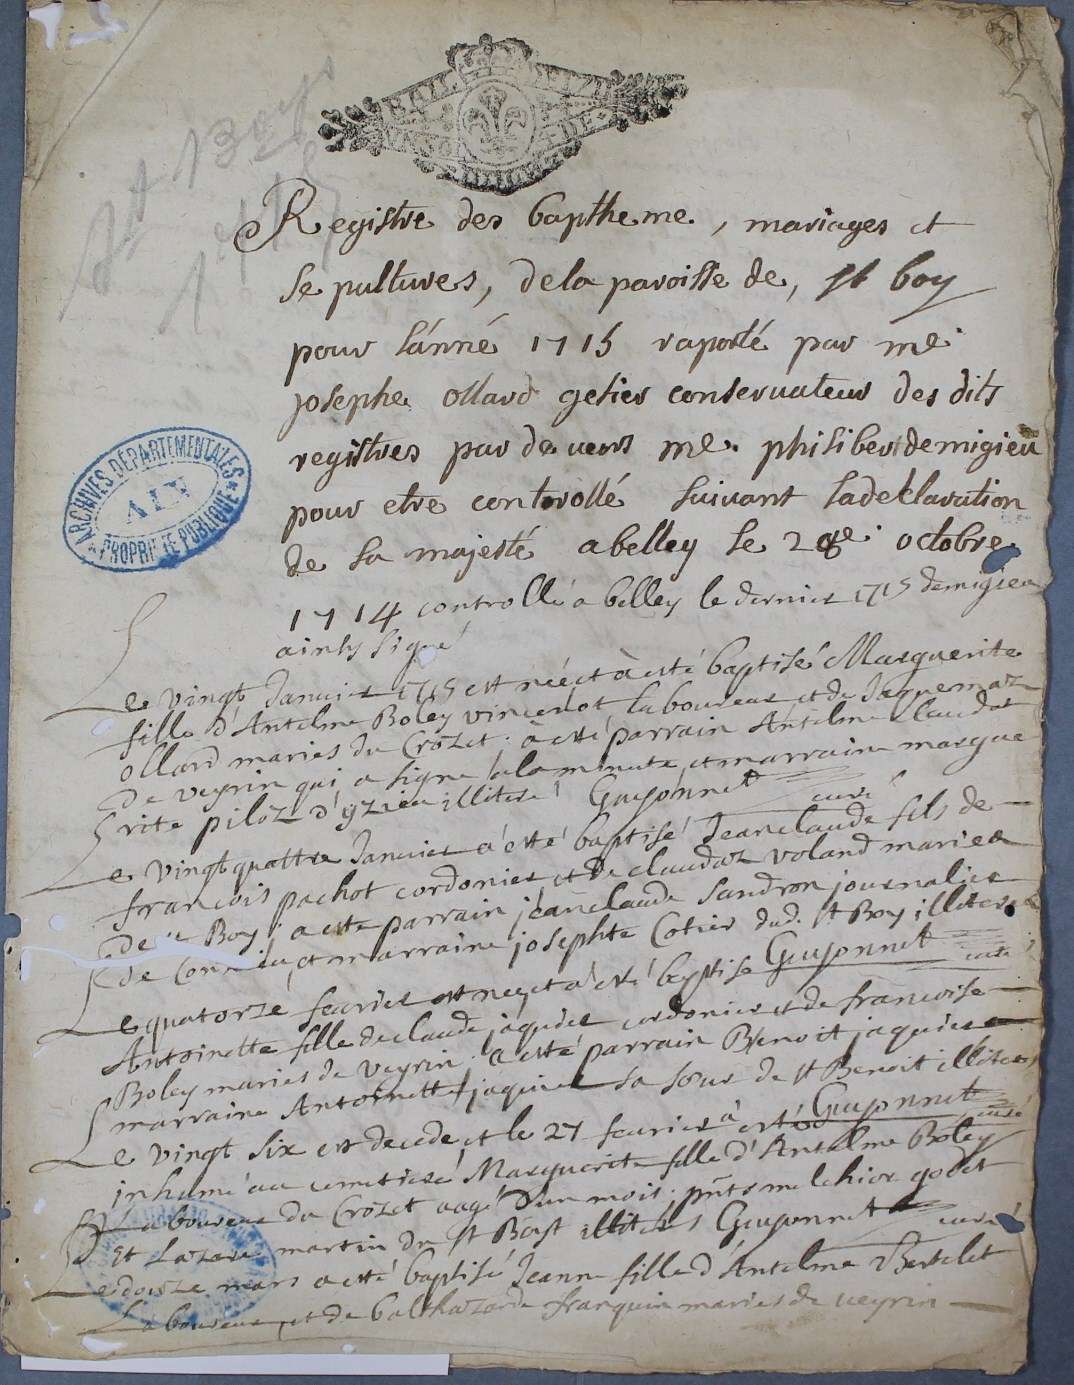 St Boys
1715
Registre des baptheme, mariages et
sepultures, dela paroisse de, st boy
pour lánné 1715 raporté par me
josephe ollard gefier conservateur des dits
registres par devens me philibert demigieu
pour etre controllé suivant ladeclaration
de sa majesté abelley le 28e octobre
1714 controllé a belley le dernier 1715 demigieu
ainsy signé
Le vingt Janvier 1715 est née et à esté baptisé Marguerite
fille d'Antelme Boley vincenot laboureur et de Jaquemaz
ollard mariés du Crozet; à esté parrain Antelme Claudot
De veyrin qui a signé a la minute et marraine margue
rite piloz d'yzieu illiteré Guyonnet curé
Le vingtquattre Janvier a esté baptisé Jeanclaude fils de
françois pachot cordonier et De claudaz voland mariés
de st Boy; a este parrain jeanclaude Sandron journalier
de Conzieu, et marraine josephte Cotier dud. st Boy illiteres
Guyonnet curé
Le quatorze fevrier est née et a esté baptisé
Antoinette fille de claude jaquier cordonier et de françoise
Boley mariés de veyrin; a esté parrain Benoit jaquier
marraine Antoinette jaquier sa soeur de st Benoit illiteres
Guyonnet curé
Le vingt six est decede et le 27 fevrier à esté
inhumé au cimetiere Marguerite fille d'Antelme Boley
Laboureur du Crozet aagé d'un mois; pnts melchior godet
Et Lazare martin de st Bost illiteres Guyonnet curé
Le douze mars a esté baptisé Jeanne fille d'Antelme Bertelet
Laboureur, et de balthazarde franquin mariés de veyrin
ARCHIVES DÉPARTEMENTALES
AIN
PROPRIÉTÉ PUBLIQUE